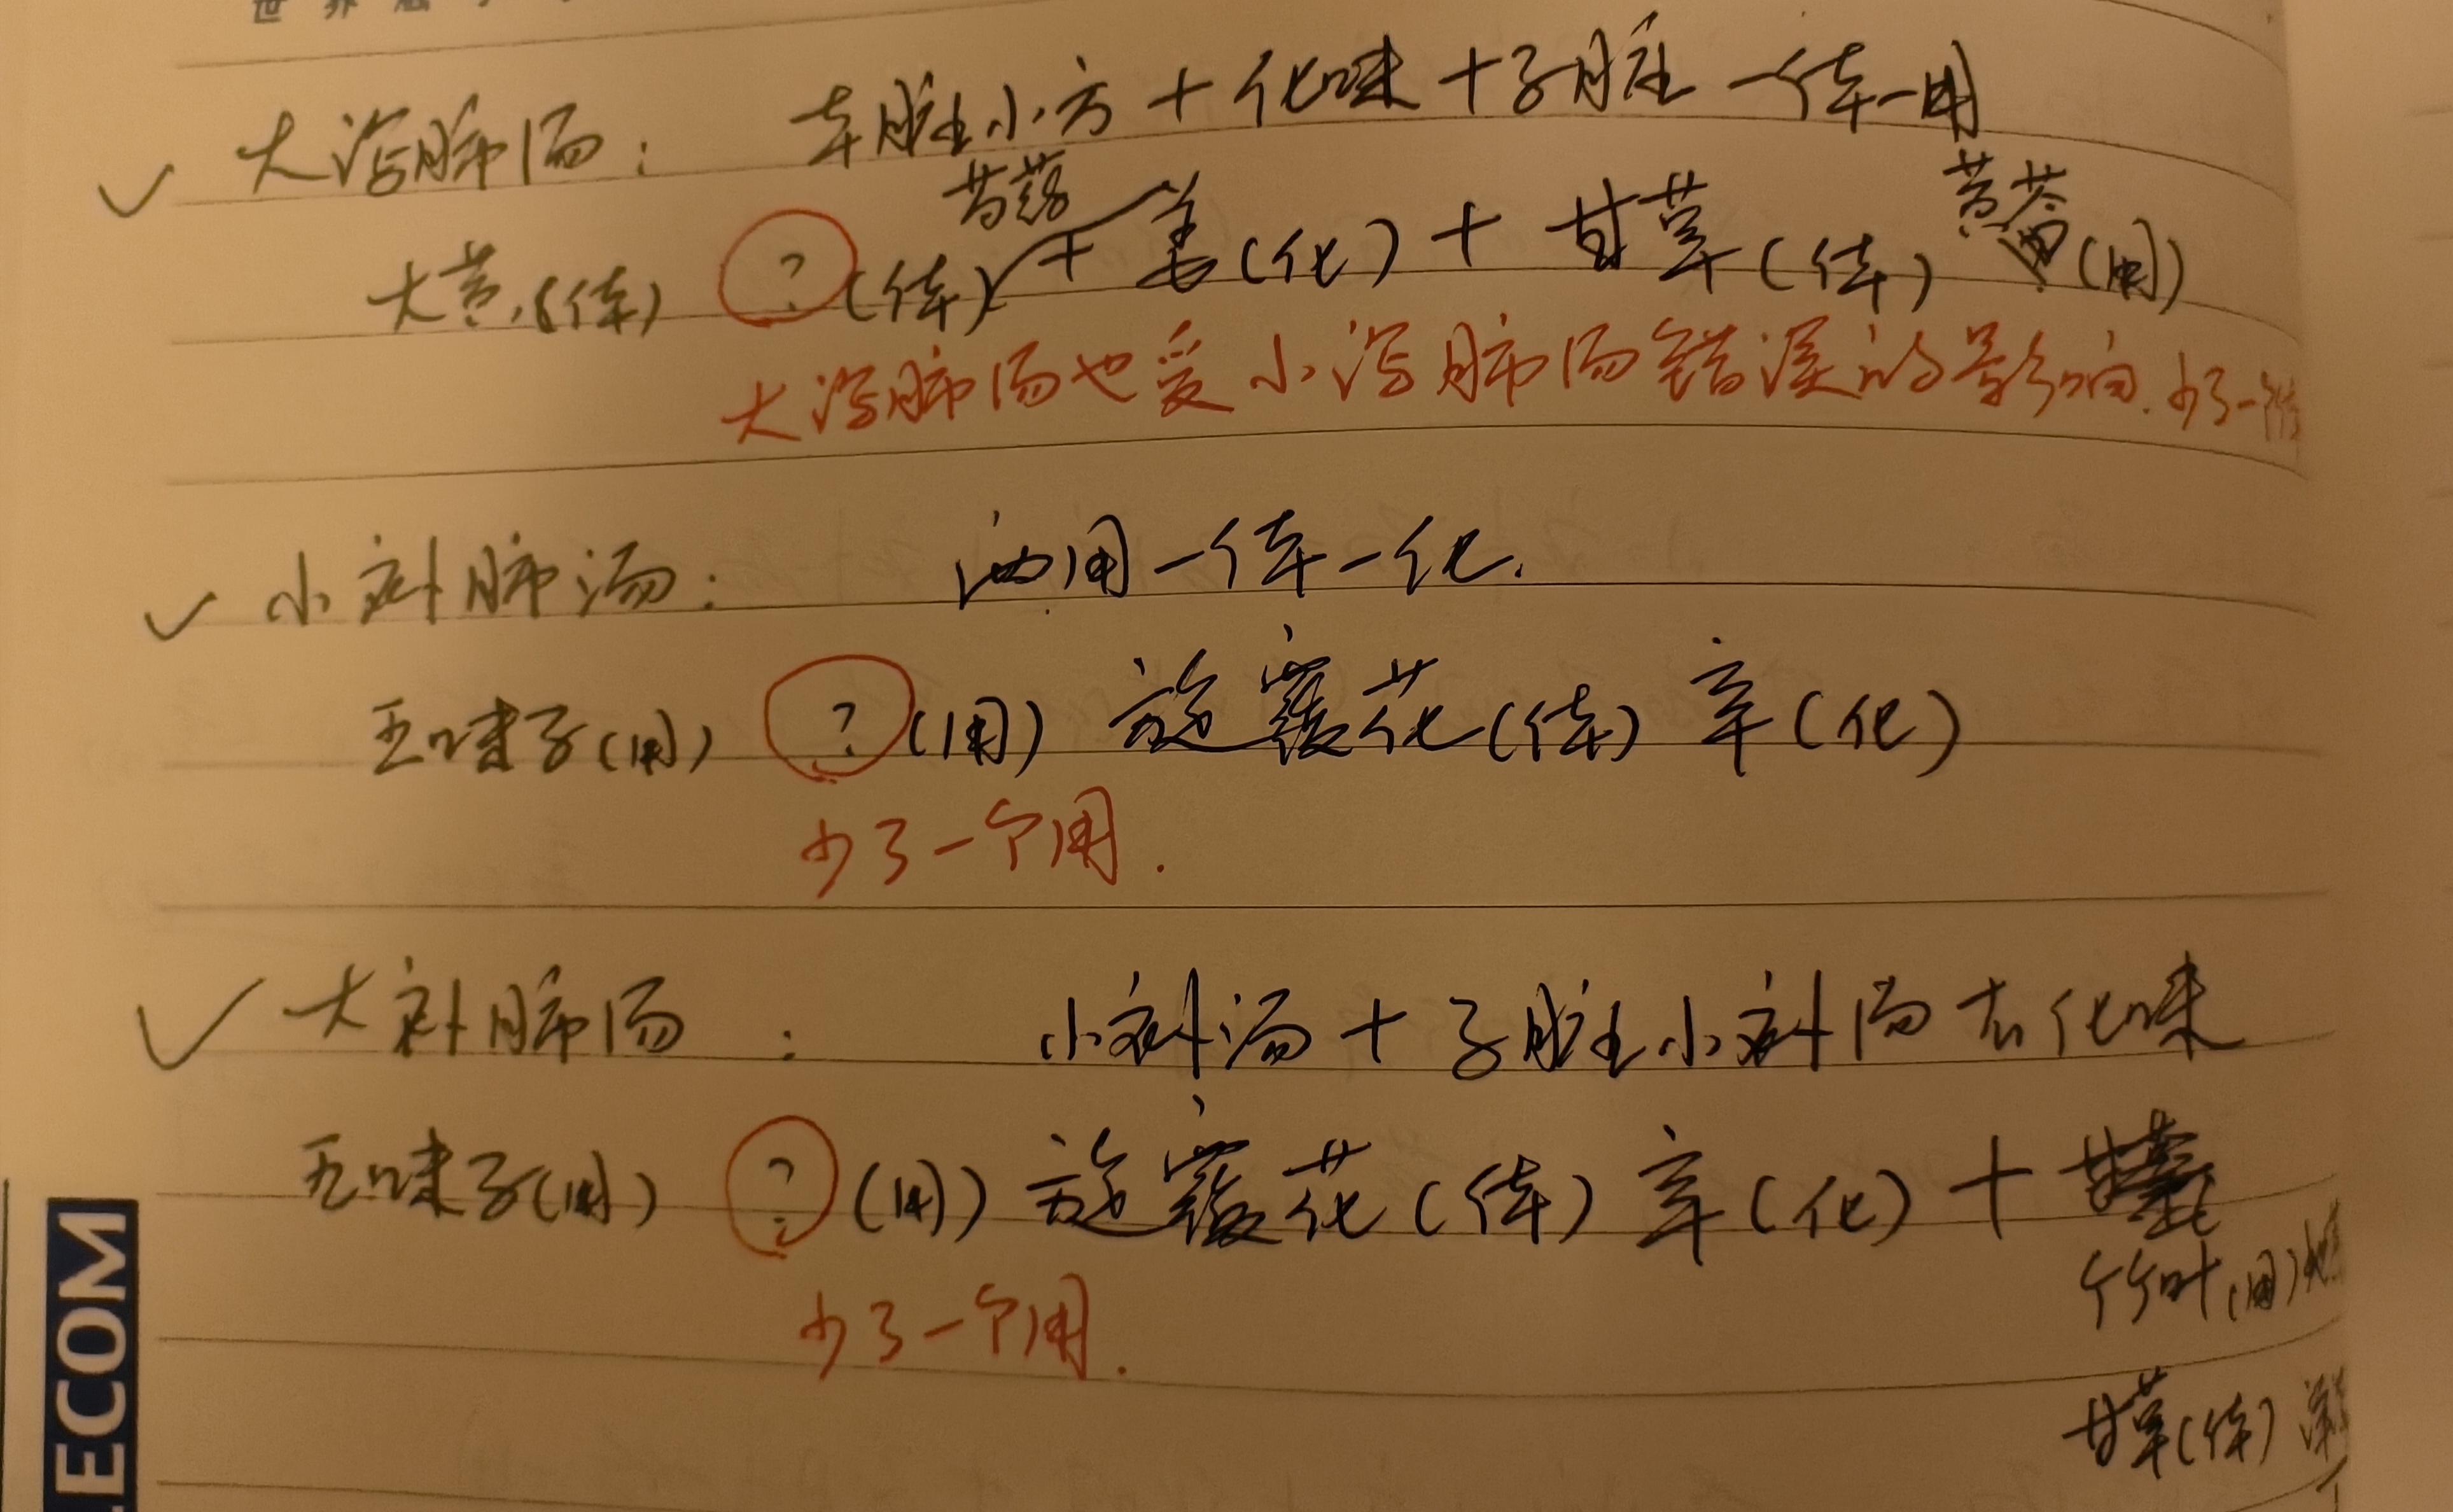 大泻肺汤: 本脏小方 + 化味 + 子脏 一体一用
芍药 黄芩
大黄(体) ?(体) + 姜(化) + 甘草(体) (用)
大泻肺汤也受小泻肺汤错误的影响.少了一个
小补肺汤: 两用一体一化.
五味子(用) ?(用) 旋覆花(体) 辛(化)
少了一个用.
大补肺汤: 小补汤 + 子脏小补汤去化味
五味子(用) ?(用) 旋覆花(体) 辛(化) +
竹叶(用)
少了一个用.
甘草(体)
ECOM